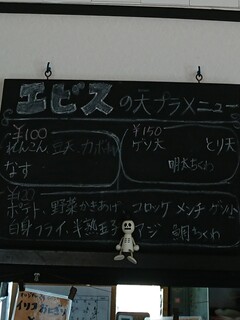 エビスの天プラメニュー
¥100
れんこん 豆天 カボチャ
なす
¥150
ゲソ天 とり天
明太ちくわ
ポテト、野菜かきあげ、コロッケ メンチ
白身フライ、半熟玉子 アジ 鯛ちくわ